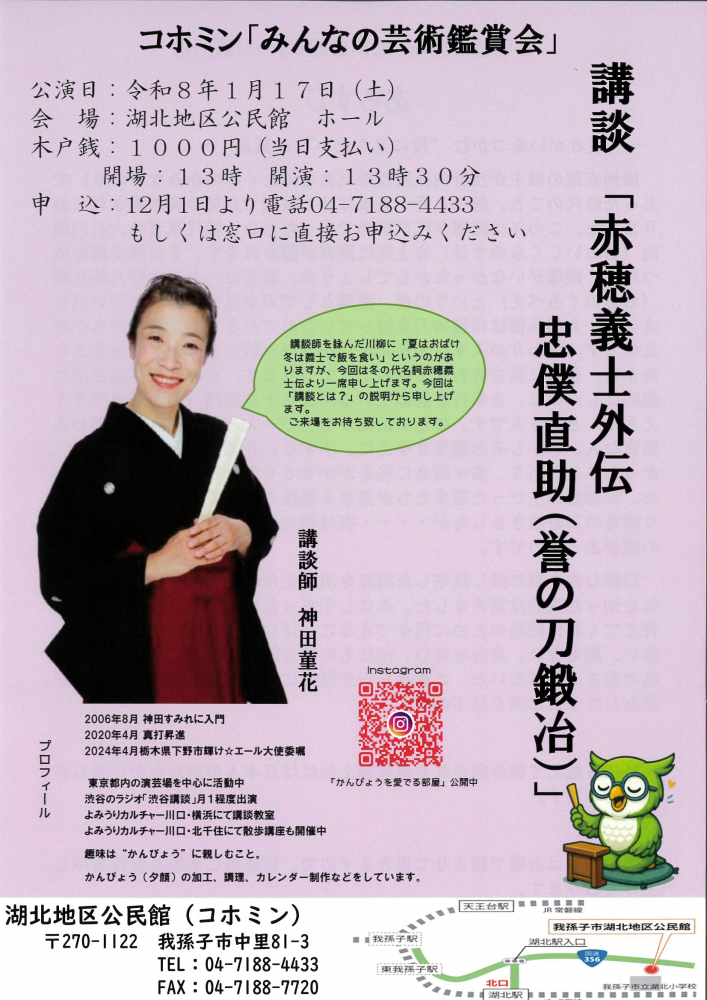 コホミン「みんなの芸術鑑賞会」
公演日：令和８年１月１７日（土）
会　場：湖北地区公民館　ホール
木戸銭：１０００円（当日支払い）
開場：１３時　開演：１３時３０分
申　込：12月1日より電話04-7188-4433
もしくは窓口に直接お申込みください
講談「赤穂義士外伝
忠僕直助（誉の刀鍛冶）」
講談師を詠んだ川柳に「夏はおばけ
冬は義士で飯を食い」というのがあ
りますが、今回は冬の代名詞赤穂義
士伝より一席申し上げます。今回は
「講談とは？」の説明から申し上げ
ます。
ご来場をお待ち致しております。
講談師　神田菫花
Instagram
「かんぴょうを愛でる部屋」公開中
プロフィール
2006年8月 神田すみれに入門
2020年4月 真打昇進
2024年4月栃木県下野市輝け☆エール大使委嘱
東京都内の演芸場を中心に活動中
渋谷のラジオ「渋谷講談」月1程度出演
よみうりカルチャー川口・横浜にて講談教室
よみうりカルチャー川口・北千住にて散歩講座も開催中
趣味は“かんぴょう”に親しむこと。
かんぴょう（夕顔）の加工、調理、カレンダー制作などをしています。
湖北地区公民館（コホミン）
〒270-1122　我孫子市中里81-3
TEL：04-7188-4433
FAX：04-7188-7720
天王台駅
JR 常磐線
我孫子駅
東我孫子駅
湖北駅入口
国道
356
我孫子市湖北地区公民館
北口
湖北駅
我孫子市立湖北小学校